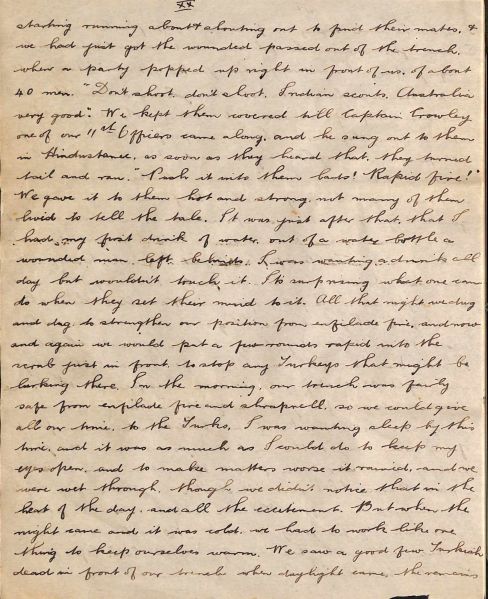 xx
starting running about & shouting out to find their mates, &
we had just got the wounded passed out of the trench,
when a party popped up right in front of us, of about
40 men. "Don't shoot, don't shoot, Indian scouts, Australia
very good". We kept them covered till Captain Crowley
one of our 11th Officers came along, and he sung out to them
in Hindustanee, as soon as they heard that, they turned
tail and ran. "Push it into them lads! Rapid fire!"
We gave it to them hot and strong, not many of them
lived to tell the tale. It was just after that, that I
had my first drink of water, out of a water bottle a
wounded man left behind. I was wanting a drink all
day but wouldn't touch it. Its surprising what one can
do when they set their mind to it. All that night we dug
and dug, to strengthen our position from enfilade fire, and now
and again we would put a few rounds rapid into the
scrub just in front, to stop any Turkeys that might be
larking there. In the morning, our trench was fairly
safe from enfilade fire and shrapnell, so we could give
all our time, to the Turks, I was wanting sleep by this
time, and it was as much as I could do to keep my
eyes open, and to make matters worse it rained, and we
were wet through, though we didn't notice that in the
heat of the day, and all the excitement. But when the
night came and it was cold, we had to work like one
thing to keep ourselves warm. We saw a good few Turkish
dead in front of our trench when daylight came, the remains